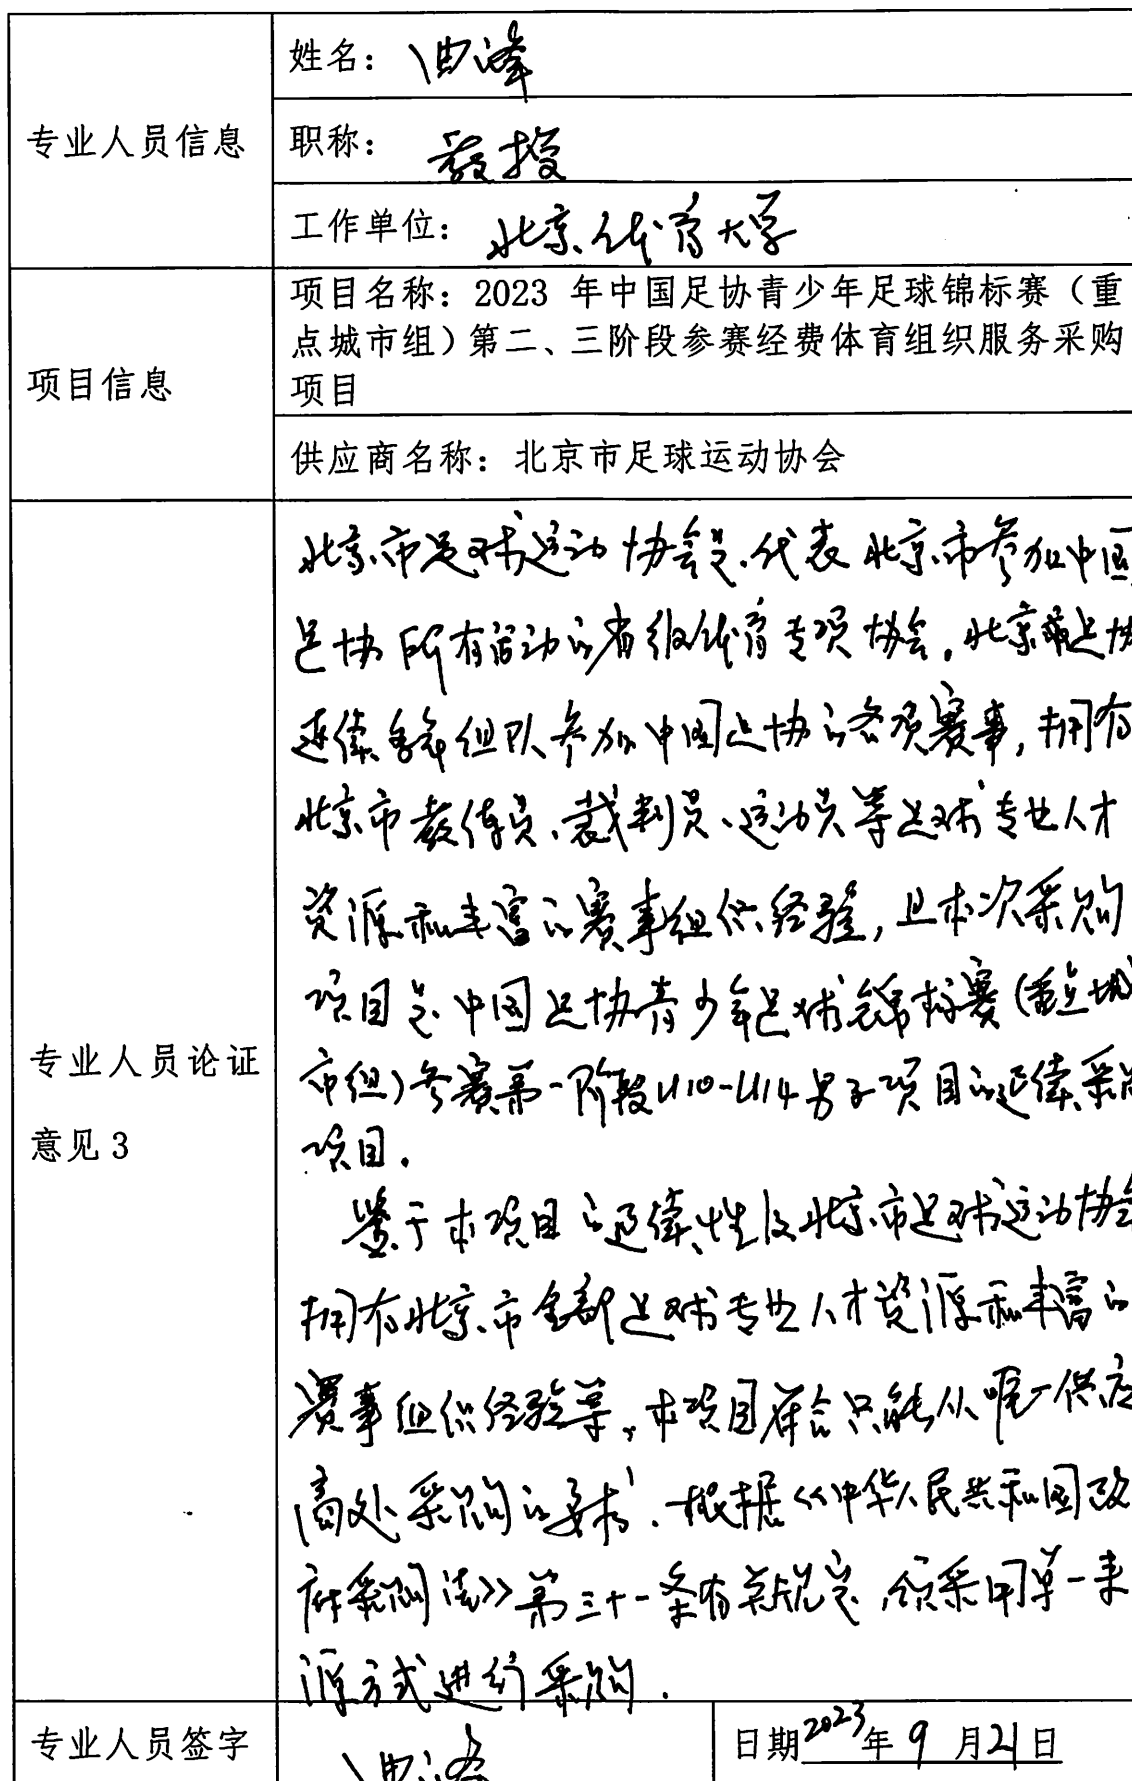 专业人员信息
姓名：曲峰
职称：教授
工作单位：北京体育大学
项目信息
项目名称：2023 年中国足协青少年足球锦标赛（重
点城市组）第二、三阶段参赛经费体育组织服务采购
项目
供应商名称：北京市足球运动协会
专业人员论证
意见 3
北京市足球运动协会是代表北京市参加中国
足协所有活动的省级体育专项协会。北京市足协
连续多年组队参加中国足协的各项赛事，拥有
北京市教练员、裁判员、运动员等足球专业人才
资源和丰富的赛事组织经验，且本次采购
项目是中国足协青少年足球锦标赛（重点城
市组）参赛第一阶段U10-U14男子项目的延续采购
项目。
鉴于本项目的延续性及北京市足球运动协会
拥有北京市全部足球专业人才资源和丰富的
赛事组织经验等，本项目符合只能从唯一供应
商处采购的要求。根据《中华人民共和国政
府采购法》第三十一条有关规定，须采用单一来
源方式进行采购。
专业人员签字
曲峰
日期2023年9月21日